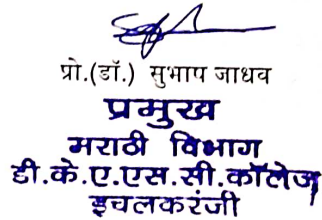 प्रो.(डॉ.) सुभाप जाधव
प्रमुख
मराठी विभाग
डी.के.ए.एस.सी.कॉलेज
इचलकरंजी